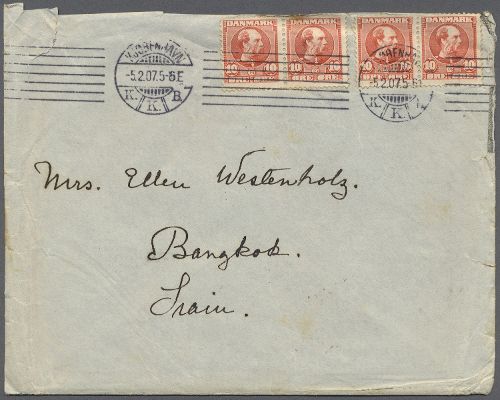 DANMARK DANMARK DANMARK DANMARK
10 10 10 10 10 10 10
ØRE ØRE
KJØBENHAVN
-5.2.07.5-6E
K. K. B.
KJØBENHAVN
5.2.07.5-6E
K. K.
Mrs. Ellen Westenholz.
Bangkok.
Siain.